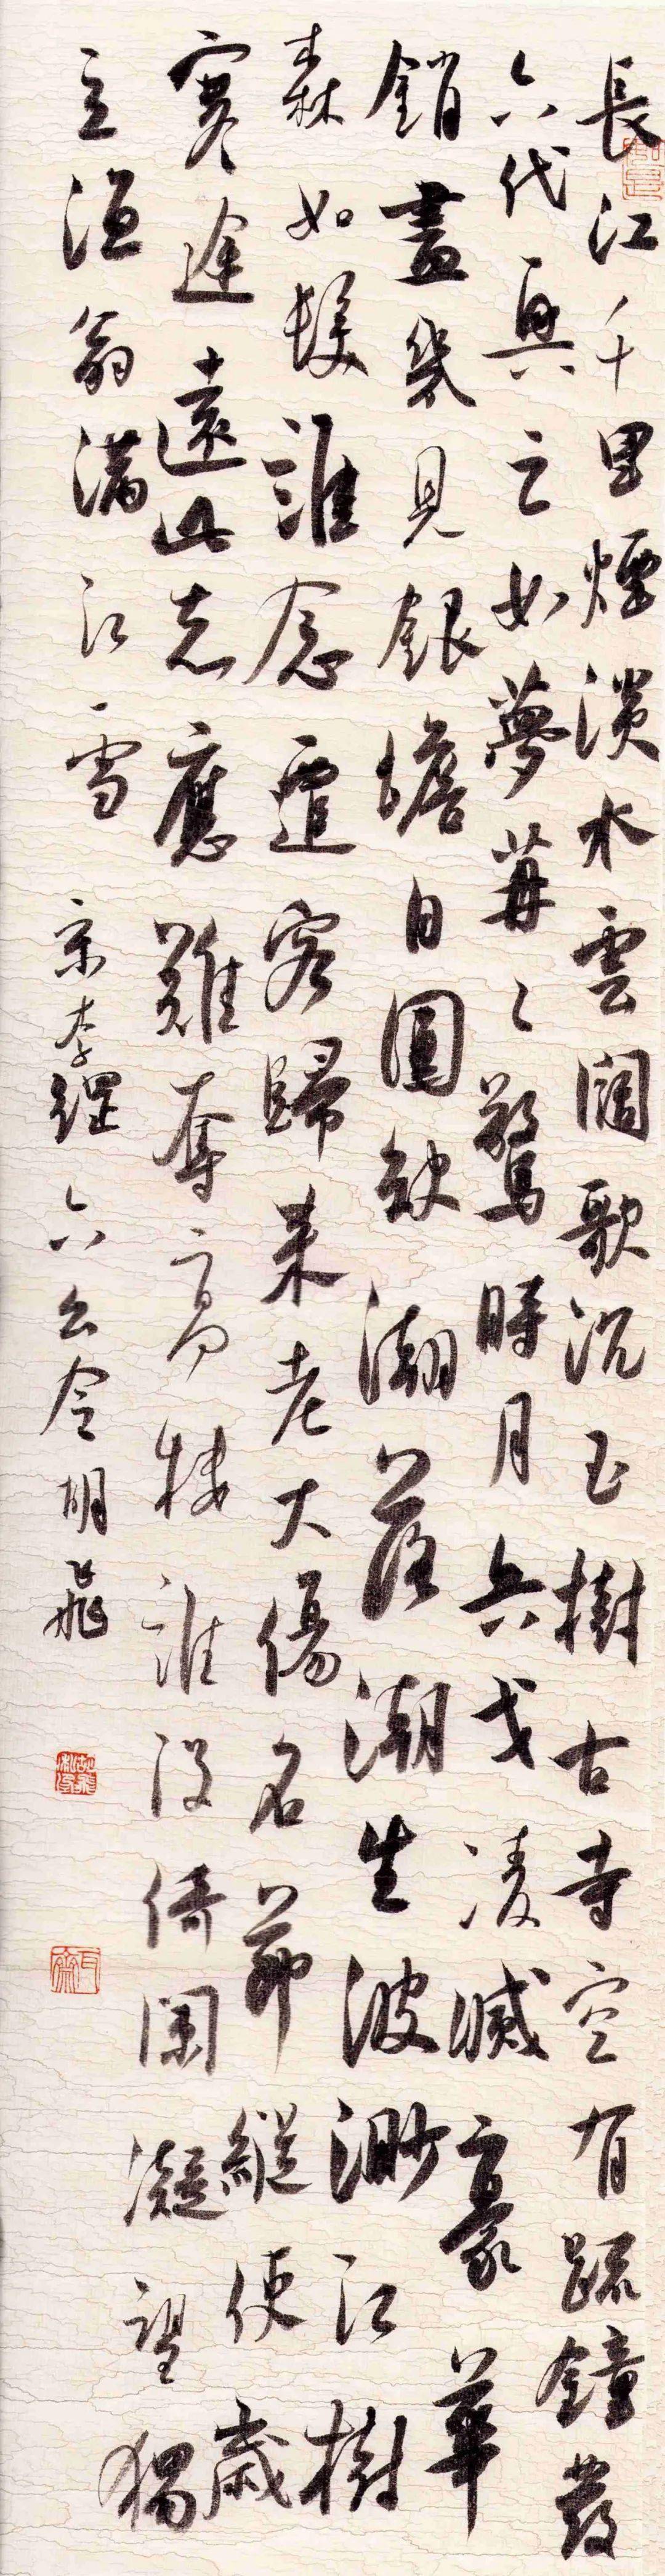 長江千里煙淡水雲闊歌沉玉樹古寺空有疏鐘發
六代興亡如夢苒々驚時月兵戈凌滅豪華
銷盡幾見銀蟾自圓缺潮落潮生波渺江樹
森如髮誰念遷客歸來老大傷名節縱使歲
寒途遠此志應難奪高樓誰設倚闌凝望獨
立漁翁滿江雪 宋李綱六幺令胡飛